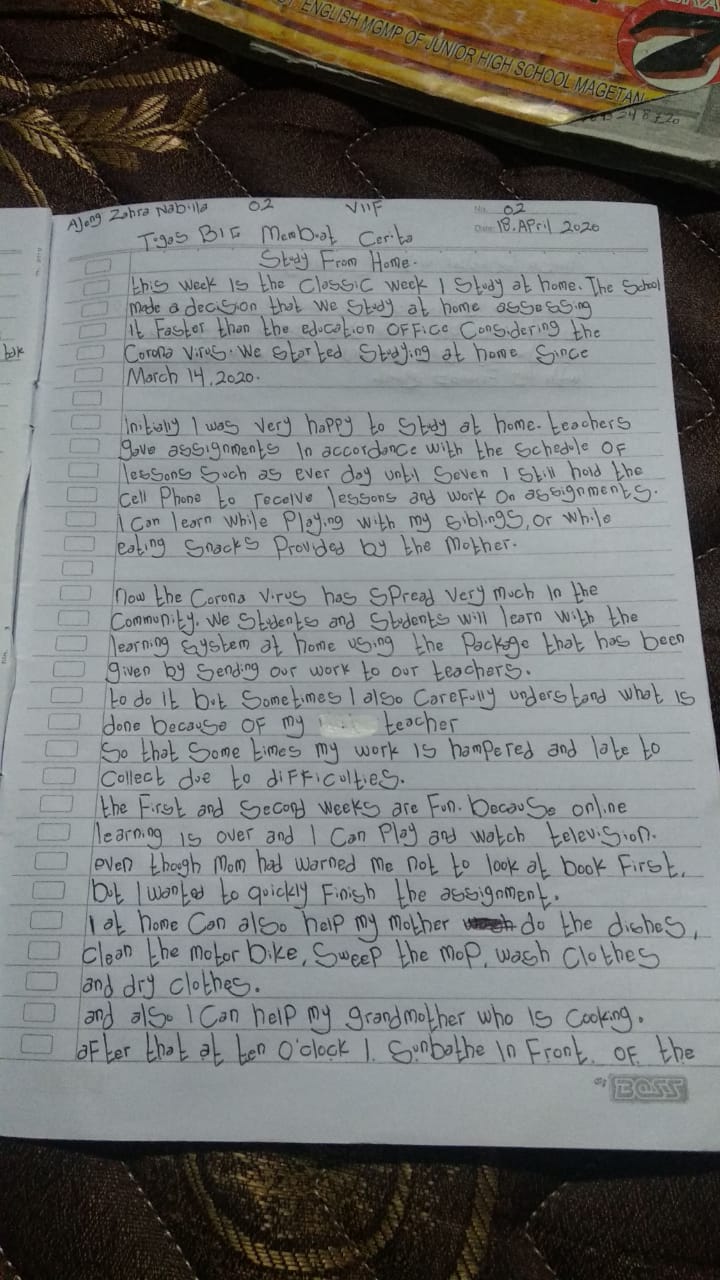 ENGLISH MGMP OF JUNIOR HIGH SCHOOL MAGETAN
Ajeng Zahra Nabilla 02 VIIF No. 02
Tugas BIG Membuat Cerita Date 18. April 2020
Study From Home.
this week Is the Classic week I Study at home. The School
made a decision that we Study at home assessing
It Faster than the education OFFice Considering the
Corona Virus. We Started Studying at home Since
March 14, 2020.
Initially I was very happy to Study at home. teachers
gave assignments In accordance with the Schedule OF
lessons Such as ever day until Seven I Still hold the
Cell Phone to receive lessons and work On assignments.
I Can learn while Playing with my siblings, or while
eating Snacks Provided by the Mother.
now the Corona Virus has SPread Very much In the
Community. We Students and Students will learn with the
learning System at home using the Package that has been
given by Sending our work to our teachers.
to do It but Sometimes I also Carefully understand what IS
done because OF my teacher
So that Some times my work IS hampered and late to
Collect due to diFFiculties.
the First and Second weeks are Fun. because online
learning IS over and I Can Play and watch television.
even though Mom had warned Me not to look at book First,
but I wanted to quickly Finish the assignment.
I at home Can also help my Mother do the dishes,
Clean the motor bike, Sweep the Mop, wash Clothes
and dry clothes.
and also I Can help my grandmother who IS Cooking.
aFter that at ten O'clock I. Sunbathe In Front. OF the
BOSS